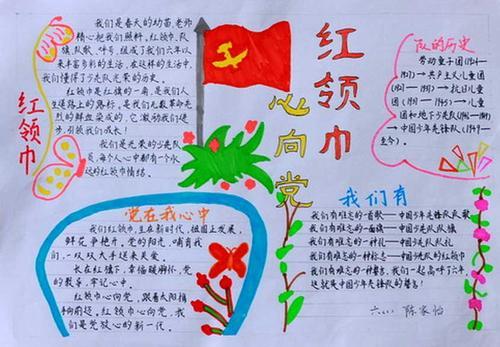 红领巾
我们是春天的幼苗,老师
精心把我们照料,红领巾、队
旗、队歌、呼号,组成了我们六年以
来丰富多彩的生活,在这样的生活中
我们懂得了少先队光荣的历史。
红领巾是红旗的一角,是我们人
生道路上的路标,是我们无数革命先
烈的鲜血染成的,它激励我们进
步,引领我们成长!
我们是光荣的少先队
员,每个人心中都有一个永
远的红领巾情结。
红领巾
心向党
队的历史
劳动童子团(1924—
1927)→共产主义儿童团
(1927—1937)→抗日儿童
团(1937—1945)→儿童
团和地下少先队(1945—1949)
→中国少年先锋队(1949—
至今)。
党在我心中
我们红领巾,生在新时代,祖国正发展,
鲜花争艳开。党的阳光,哺育我
们,一双双大手送来关爱。
长在红旗下,幸福暖胸怀,党
的教导,牢记心中。
红领巾心向党,跟着太阳旗
帜向前进。红领巾心向党,我
们是党放心的新一代。
我们有
我们有难忘的一首歌—中国少年先锋队队歌
我们有难忘的一面旗—中国少先队队旗
我们有难忘的一种礼—中国少先队队礼
我们有难忘的一种标志—中国少先队的红领巾
我们有难忘的一种誓言,我们一起高呼了六年,
这就是中国少年先锋队的誓言!
陈家怡